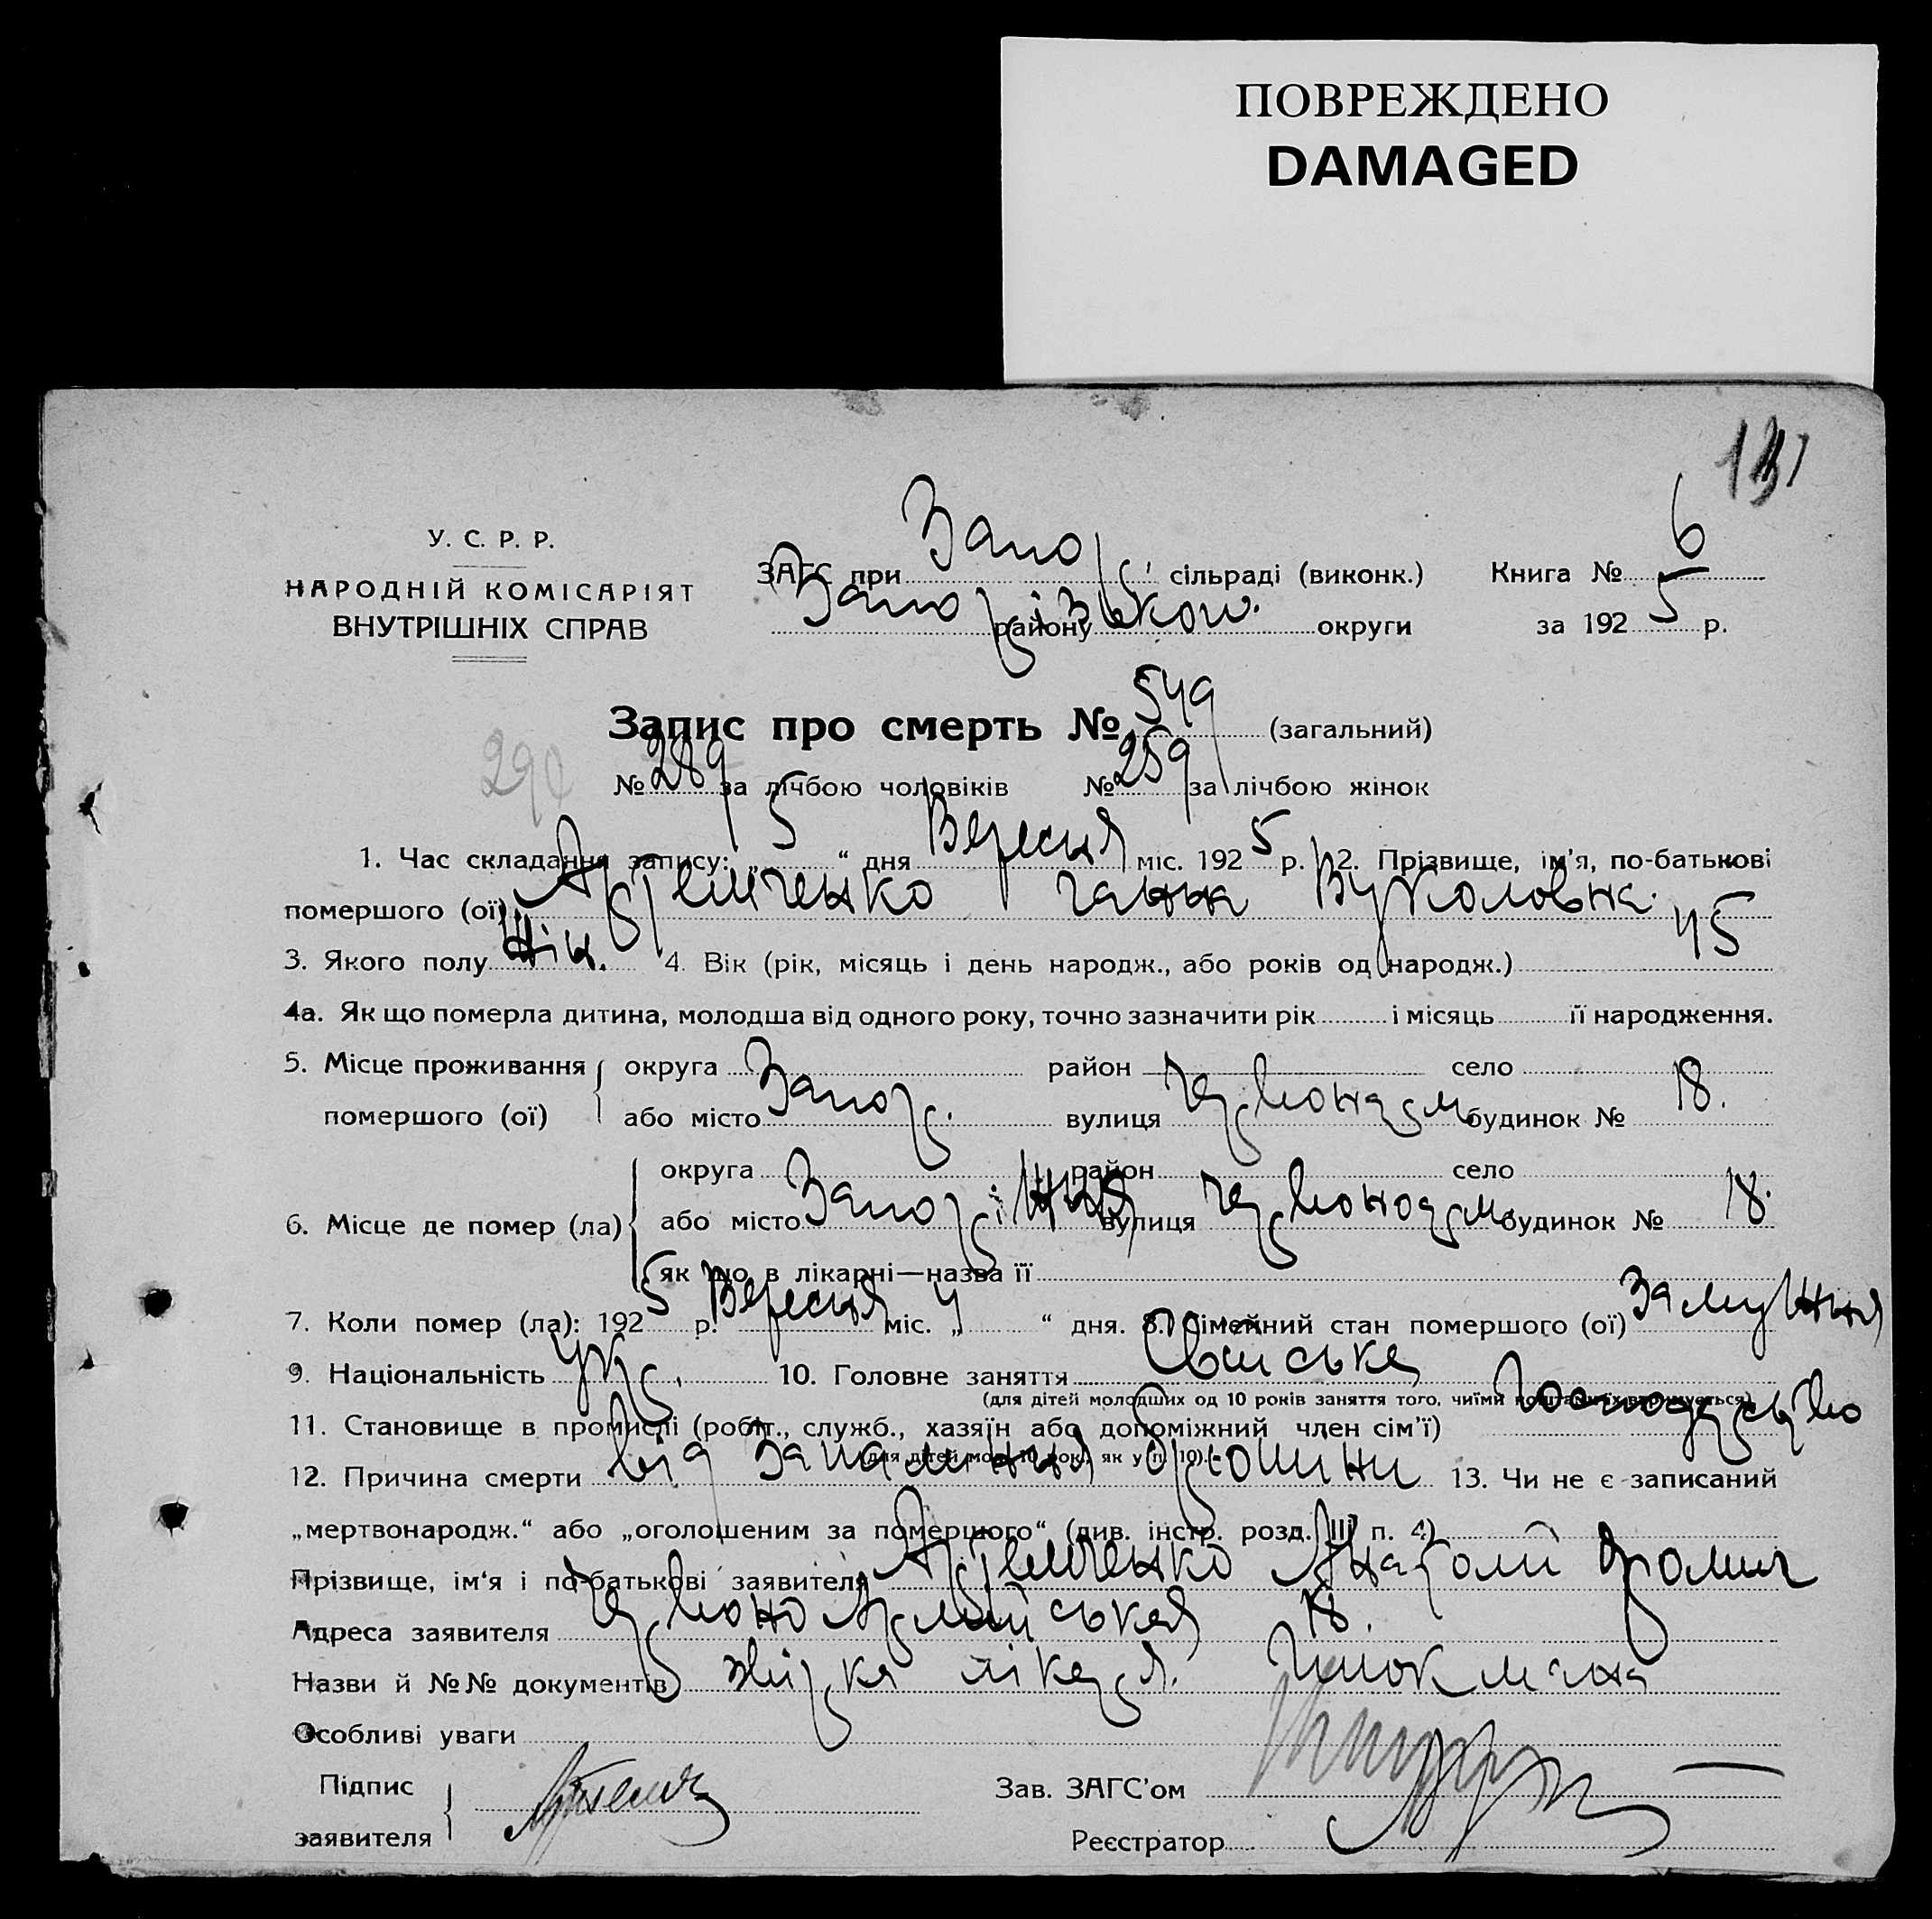 ПОВРЕЖДЕНО
DAMAGED
У. С. Р. Р.
НАРОДНІЙ КОМІСАРІЯТ
ВНУТРІШНІХ СПРАВ
ЗАГС при Запор. сільраді (виконк.) Книга № 6
Запорізьком. району округи за 1925 р.
Запис про смерть № 549 (загальний)
290 № 289 за лічбою чоловіків № 259 за лічбою жінок
1. Час складання запису: „ 5 “ дня Вересня міс. 1925 р. 2. Прізвище, ім'я, по-батькові
помершого (ої) Артемченко Ганна Вуколовна.
3. Якого полу Жін. 4. Вік (рік, місяць і день народж., або років од народж.) 45
4а. Як що померла дитина, молодша від одного року, точно зазначити рік і місяць її народження.
5. Місце проживання округа район село
помершого (ої) або місто Запор. вулиця Червоноарм. будинок № 18.
округа район село
6. Місце де помер (ла) або місто Запоріжжя вулиця Червоноарм. будинок № 18.
як що в лікарні—назва її
7. Коли помер (ла): 1925 р. Вересня міс. „ 4 “ дня. 8. Сімейний стан помершого (ої) Замужня
9. Національність Укр. 10. Головне заняття Свійське
(для дітей молодших од 10 років заняття того, чиїми коштами їх втримується) господарство
11. Становище в промислі (робіт., служб., хазяїн або допоміжний член сім'ї)
(для дітей мол. 10 рок. як у п. 10).
12. Причина смерти від Запалення брюшини 13. Чи не є записаний
„мертвонародж.“ або „оголошеним за помершого“ (див. інстр. розд. III п. 4)
Прізвище, ім'я і по-батькові заявителя Артемченко Анатолій
Адреса заявителя Червоно Армійська 18.
Назви й №№ документів лікаря.
Особливі уваги
Підпис Зав. ЗАГС'ом
заявителя Реєстратор